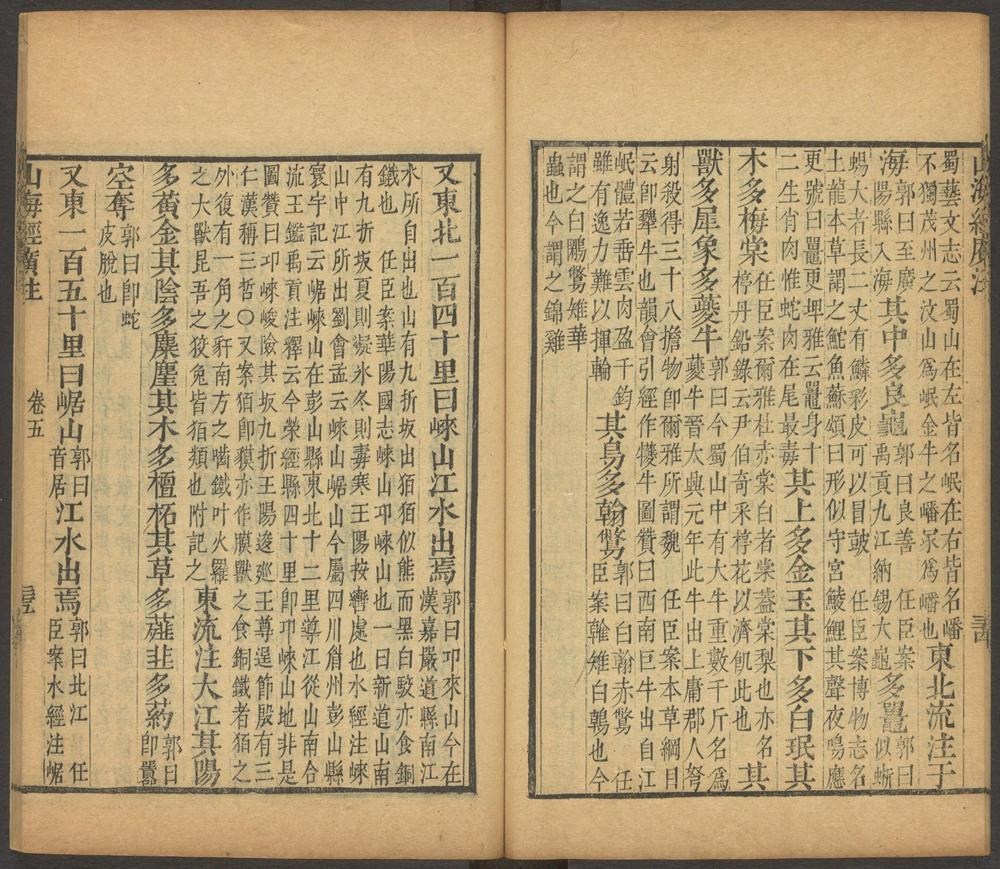 山海經廣注 三四
蜀藝文志云蜀山在左皆名岷在右皆名嶓
不獨茂州之汶山爲岷金牛之嶓冢爲嶓也東北流注于
海郭曰至廣
陽縣入海其中多良龜郭曰良善 任臣案
禹貢九江納錫大龜多鼉郭曰
似蜥
蜴大者長二丈有鱗彩皮可以冒鼓 任臣案博物志名
土龍本草謂之鮀魚蘇頌曰形似守宮鯪鯉其聲夜鳴應
更號曰鼉更埤雅云鼉身十
二生肖肉惟蛇肉在尾最毒其上多金玉其下多白珉其
木多梅棠任臣案爾雅杜赤棠白者棠蓋棠梨也亦名
楟丹鉛錄云尹伯奇采楟花以濟飢此也其
獸多犀象多夔牛郭曰今蜀山中有大牛重數千斤名爲
夔牛晉太興元年此牛出上庸郡人弩
射殺得三十八擔物卽爾雅所謂魏 任臣案本草綱目
云卽犛牛也韻會引經作犪牛圖贊曰西南巨牛出自江
岷體若垂雲肉盈千鈞
雖有逸力難以揮輪其鳥多翰鷩郭曰白翰赤鷩 任
臣案雗雉白鵫也今
謂之白鷴鷩雉華
蟲也今謂之錦雞
又東北一百四十里曰崍山江水出焉郭曰邛來山今在
漢嘉嚴道縣南江
水所自出也山有九折坂出狛狛似熊而黑白駮亦食銅
鐵也 任臣案華陽國志崍山邛崍山也一曰新道山南
有九折坂夏則凝冰冬則毒寒王陽按轡處也水經注崍
山中江所出劉會孟云崍山崌山今屬四川眉州彭山縣
寰宇記云崌崍山在彭山縣東北十二里導江從山南合
流王鑑禹貢注釋云今榮經縣四十里卽邛崍山地非是
圖贊曰邛崍峻險其坂九折王陽逡巡王尊逞節殷有三
仁漢稱三哲〇又案狛卽貘亦作膜獸之食銅鐵者狛之
外復有一角之豻南方之嚙鐵叶火羅
之大獸昆吾之狡兔皆狛類也附記之東流注大江其陽
多黃金其陰多麋麈其木多檀柘其草多䪥韭多葯郭曰
卽䖀
空奪郭曰卽蛇
皮脫也
又東一百五十里曰崌山郭曰
音居江水出焉郭曰北江 任
臣案水經注崌
山海經廣注 卷五 三五